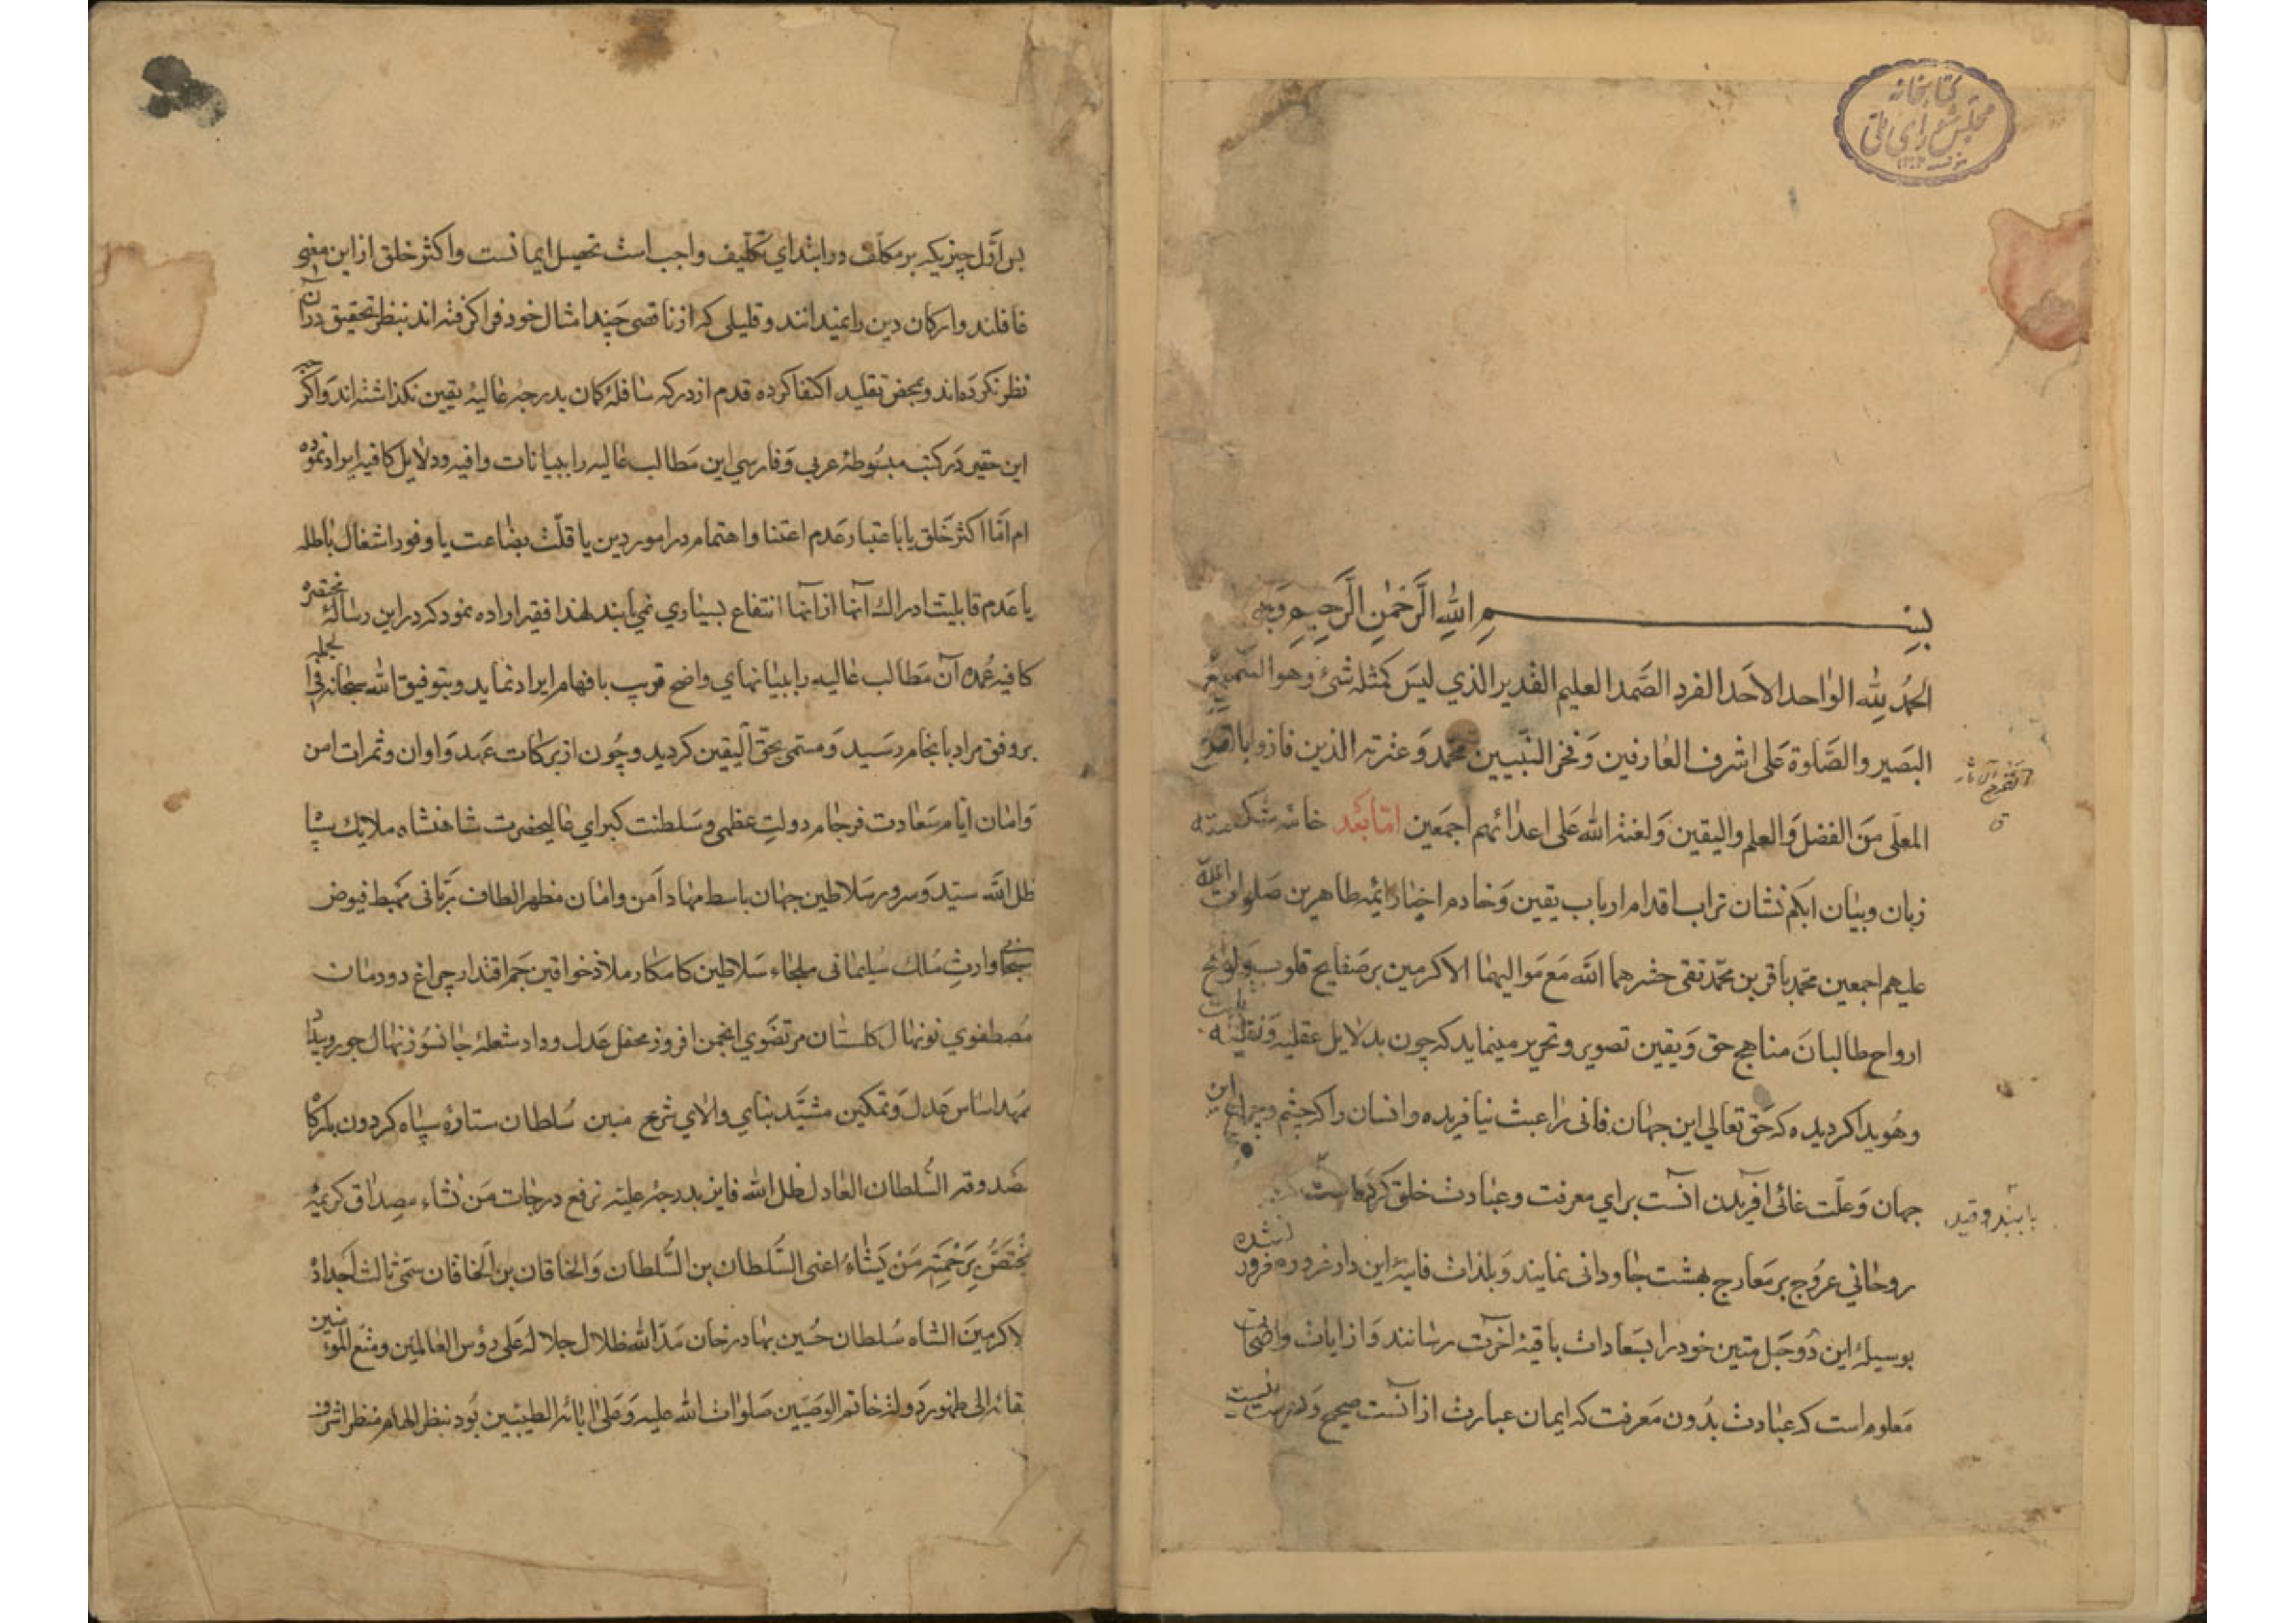 کتابخانه
مجلس شورای ملی
بسم الله الرحمن الرحیم وبه
الحمد لله الواحد الاحد الفرد الصمد العلیم القدیر الذی لیس کمثله شیء وهو السمیع
البصیر والصلوة علی اشرف العارفین وفخر النبیین محمد وعترته الذین فازوا بالقدح
المعلی من الفضل والعلم والیقین ولعنة الله علی اعدائهم اجمعین اما بعد خامه شکسته
زبان وبیان ابکم نشان تراب اقدام ارباب یقین وخادم اخبار ائمه طاهرین صلوات الله
علیهم اجمعین محمد باقر بن محمد تقی حشرهما الله مع موالیهما الاکرمین بر صفایح قلوب والواح
ارواح طالبان مناهج حق ویقین تصویر وتحریر مینماید که چون بدلایل عقلیه ونقلیه
وهویدا کردیده که حق تعالی این جهان فانی را عبث نیافریده وانسان را که چشم وچراغ این
جهان وعلت غائی آفریدن آنست برای معرفت وعبادت خلق کرده است
روحانی عروج بر معارج بهشت جاودانی نمایند وبلذات فانیه این دار غرور مغرور نشده
بوسیلهٔ این دو حبل متین خود را بسعادات باقیهٔ آخرت رسانند واز ایات واضحات
معلوم است که عبادت بدون معرفت که ایمان عبارت از آنست صحیح ودرست نیست
پس اول چیزیکه بر مکلف در ابتدای تکلیف واجب است تحصیل ایمانست واکثر خلق از این معنی
غافلند وارکان دین را نمیدانند وقلیلی که از ناقصی چند امثال خود فرا کرفته اند بنظر تحقیق در آن
نظر نکرده اند وبمحض تقلید اکتفا کرده قدم از درکه سافلهٔ کمان بدرجهٔ عالیهٔ یقین نکذاشته اند واکر چه
این حقیر در کتب مبسوطهٔ عربی وفارسی این مطالب عالیه را ببیانات وافیه ودلایل کافیه ایراد نموده
ام اما اکثر خلق یا باعتبار عدم اعتنا واهتمام در امور دین یا قلت بضاعت یا وفور اشغال باطله
یا عدم قابلیت ادراك آنها از آنها انتفاع بسیاری نمی یابند لهذا فقیر اراده نمود که در این رسالهٔ مختصره
کافیه عمده آن مطالب عالیه را ببیانهای واضح قریب بافهام ایراد نماید وبتوفیق الله سبحانه فی الجمله
بر وفق مراد بانجام رسید ومسمی بحق الیقین کردید وچون از برکات عهد واوان وثمرات امن
وامان ایام سعادت فرجام دولت عظمی وسلطنت کبرای عالیحضرت شاهنشاه ملایك سپاه
ظل الله سید وسرور سلاطین جهان باسط مهاد امن وامان مظهر الطاف ربانی مهبط فیوض
سبحانی وارث ملك سلیمانی ملجاء سلاطین کامکار ملاذ خواقین جم اقتدار چراغ دودمان
مصطفوی نونهال کلستان مرتضوی انجمن افروز محفل عدل وداد شعلهٔ جانسوز نهال جور وبیداد
ممهد اساس عدل وتمکین مشید بنای والای شرع مبین سلطان ستاره سپاه کردون بارکاه
صدوقه السلطان العادل ظل الله فایز بدرجهٔ علیه نرفع درجات من نشاء مصداق کریمهٔ
یختص برحمته من یشاء اعنی السلطان بن السلطان والخاقان بن الخاقان سمی ثالث اجداده
الاکرمین الشاه سلطان حسین بهادرخان مد الله ظلال جلاله علی رؤس العالمین ومتع المؤمنین
بقائه الی ظهور دولة خاتم الوصیین صلوات الله علیه وعلی ابائه الطیبین بود بنظر الهام منظر اشرف